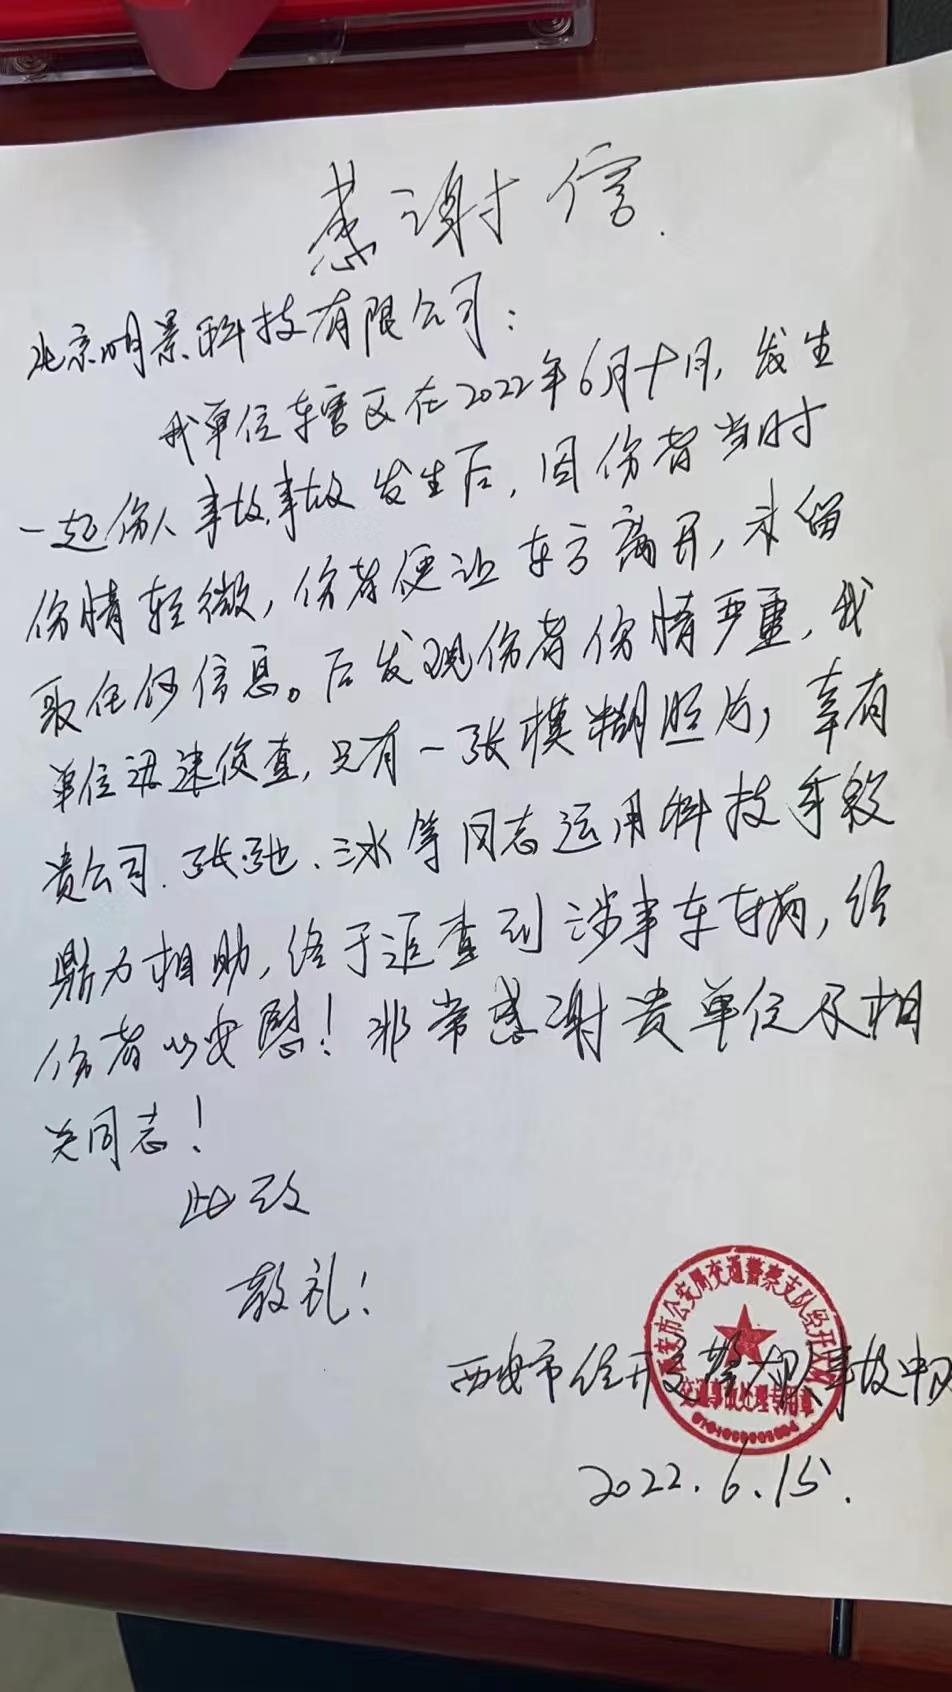 感谢信.
北京明景科技有限公司:
我单位辖区在2022年6月十日,发生
一起伤人事故,事故发生后,因伤者当时
伤情轻微,伤者便让车方离开,未留
取任何信息。后发现伤者伤情严重,我
单位迅速侦查,只有一张模糊照片,幸有
贵公司.张弛、冰等同志运用科技手段
鼎力相助,终于追查到涉事车辆,给
伤者以安慰!非常感谢贵单位及相
关同志!
此致
敬礼!
西安市公安局交通警察支队经开大队
交通事故处理专用章
西安市经开交警大队事故中队
2022.6.15.